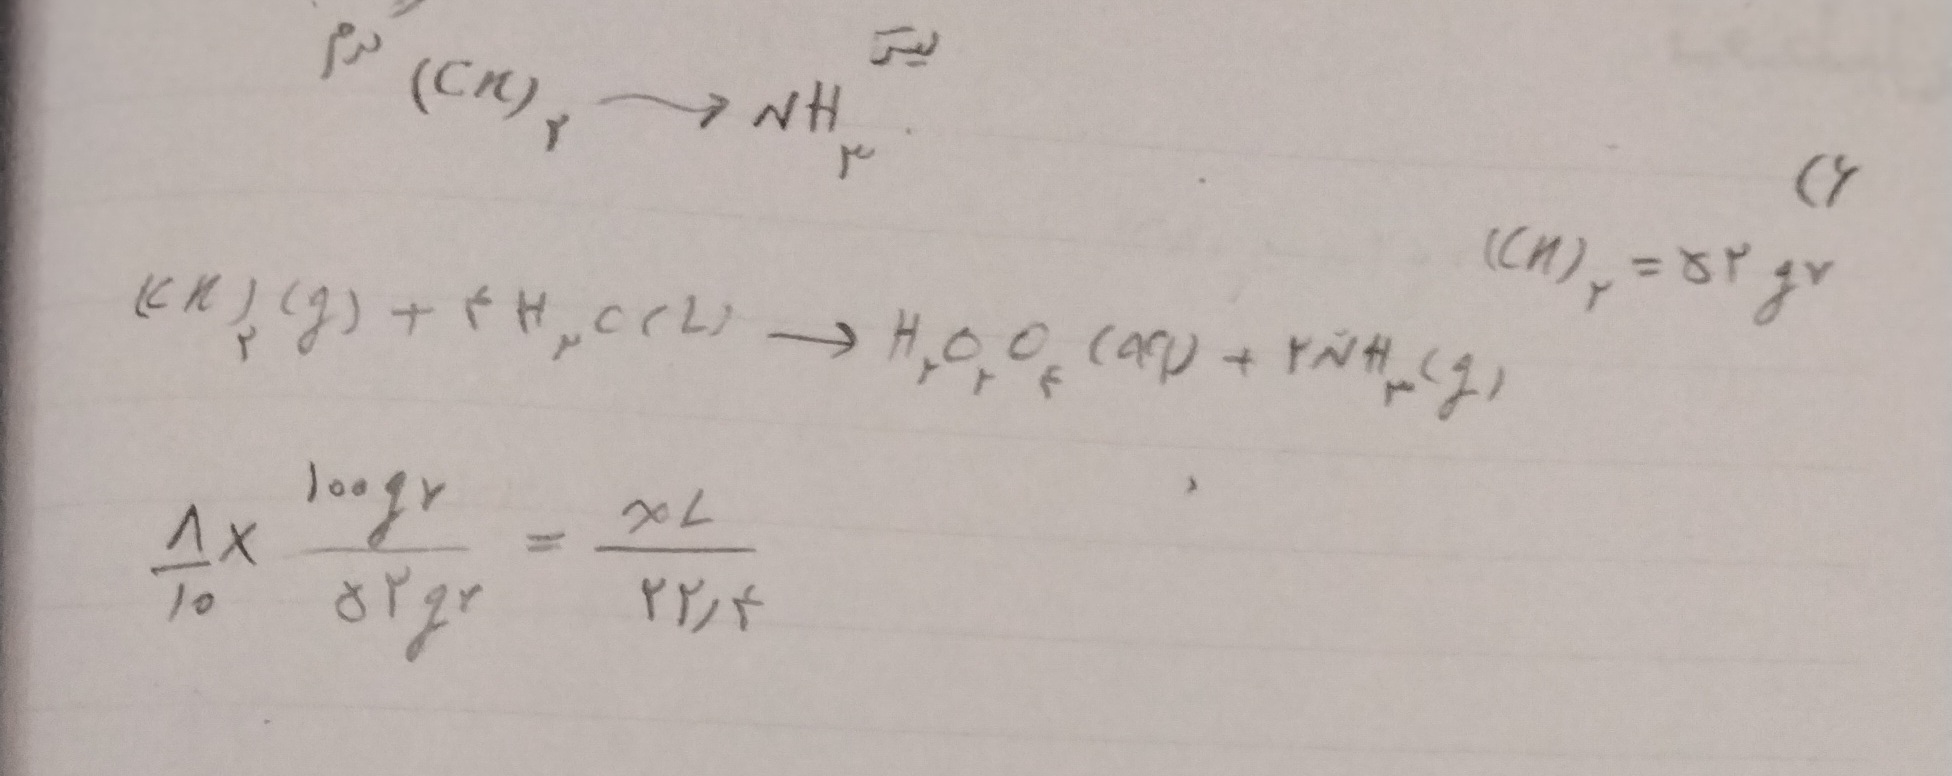 گرم (CN)۲ → NH۳ لیتر
۶)
(CN)۲ = ۵۲ gr
(CN)۲(g) + ۴H۲O(L) → H۲C۲O۴(aq) + ۲NH۳(g)
۸/۱۰ × ۱۰۰gr/۵۲gr = xL/۲۲٫۴